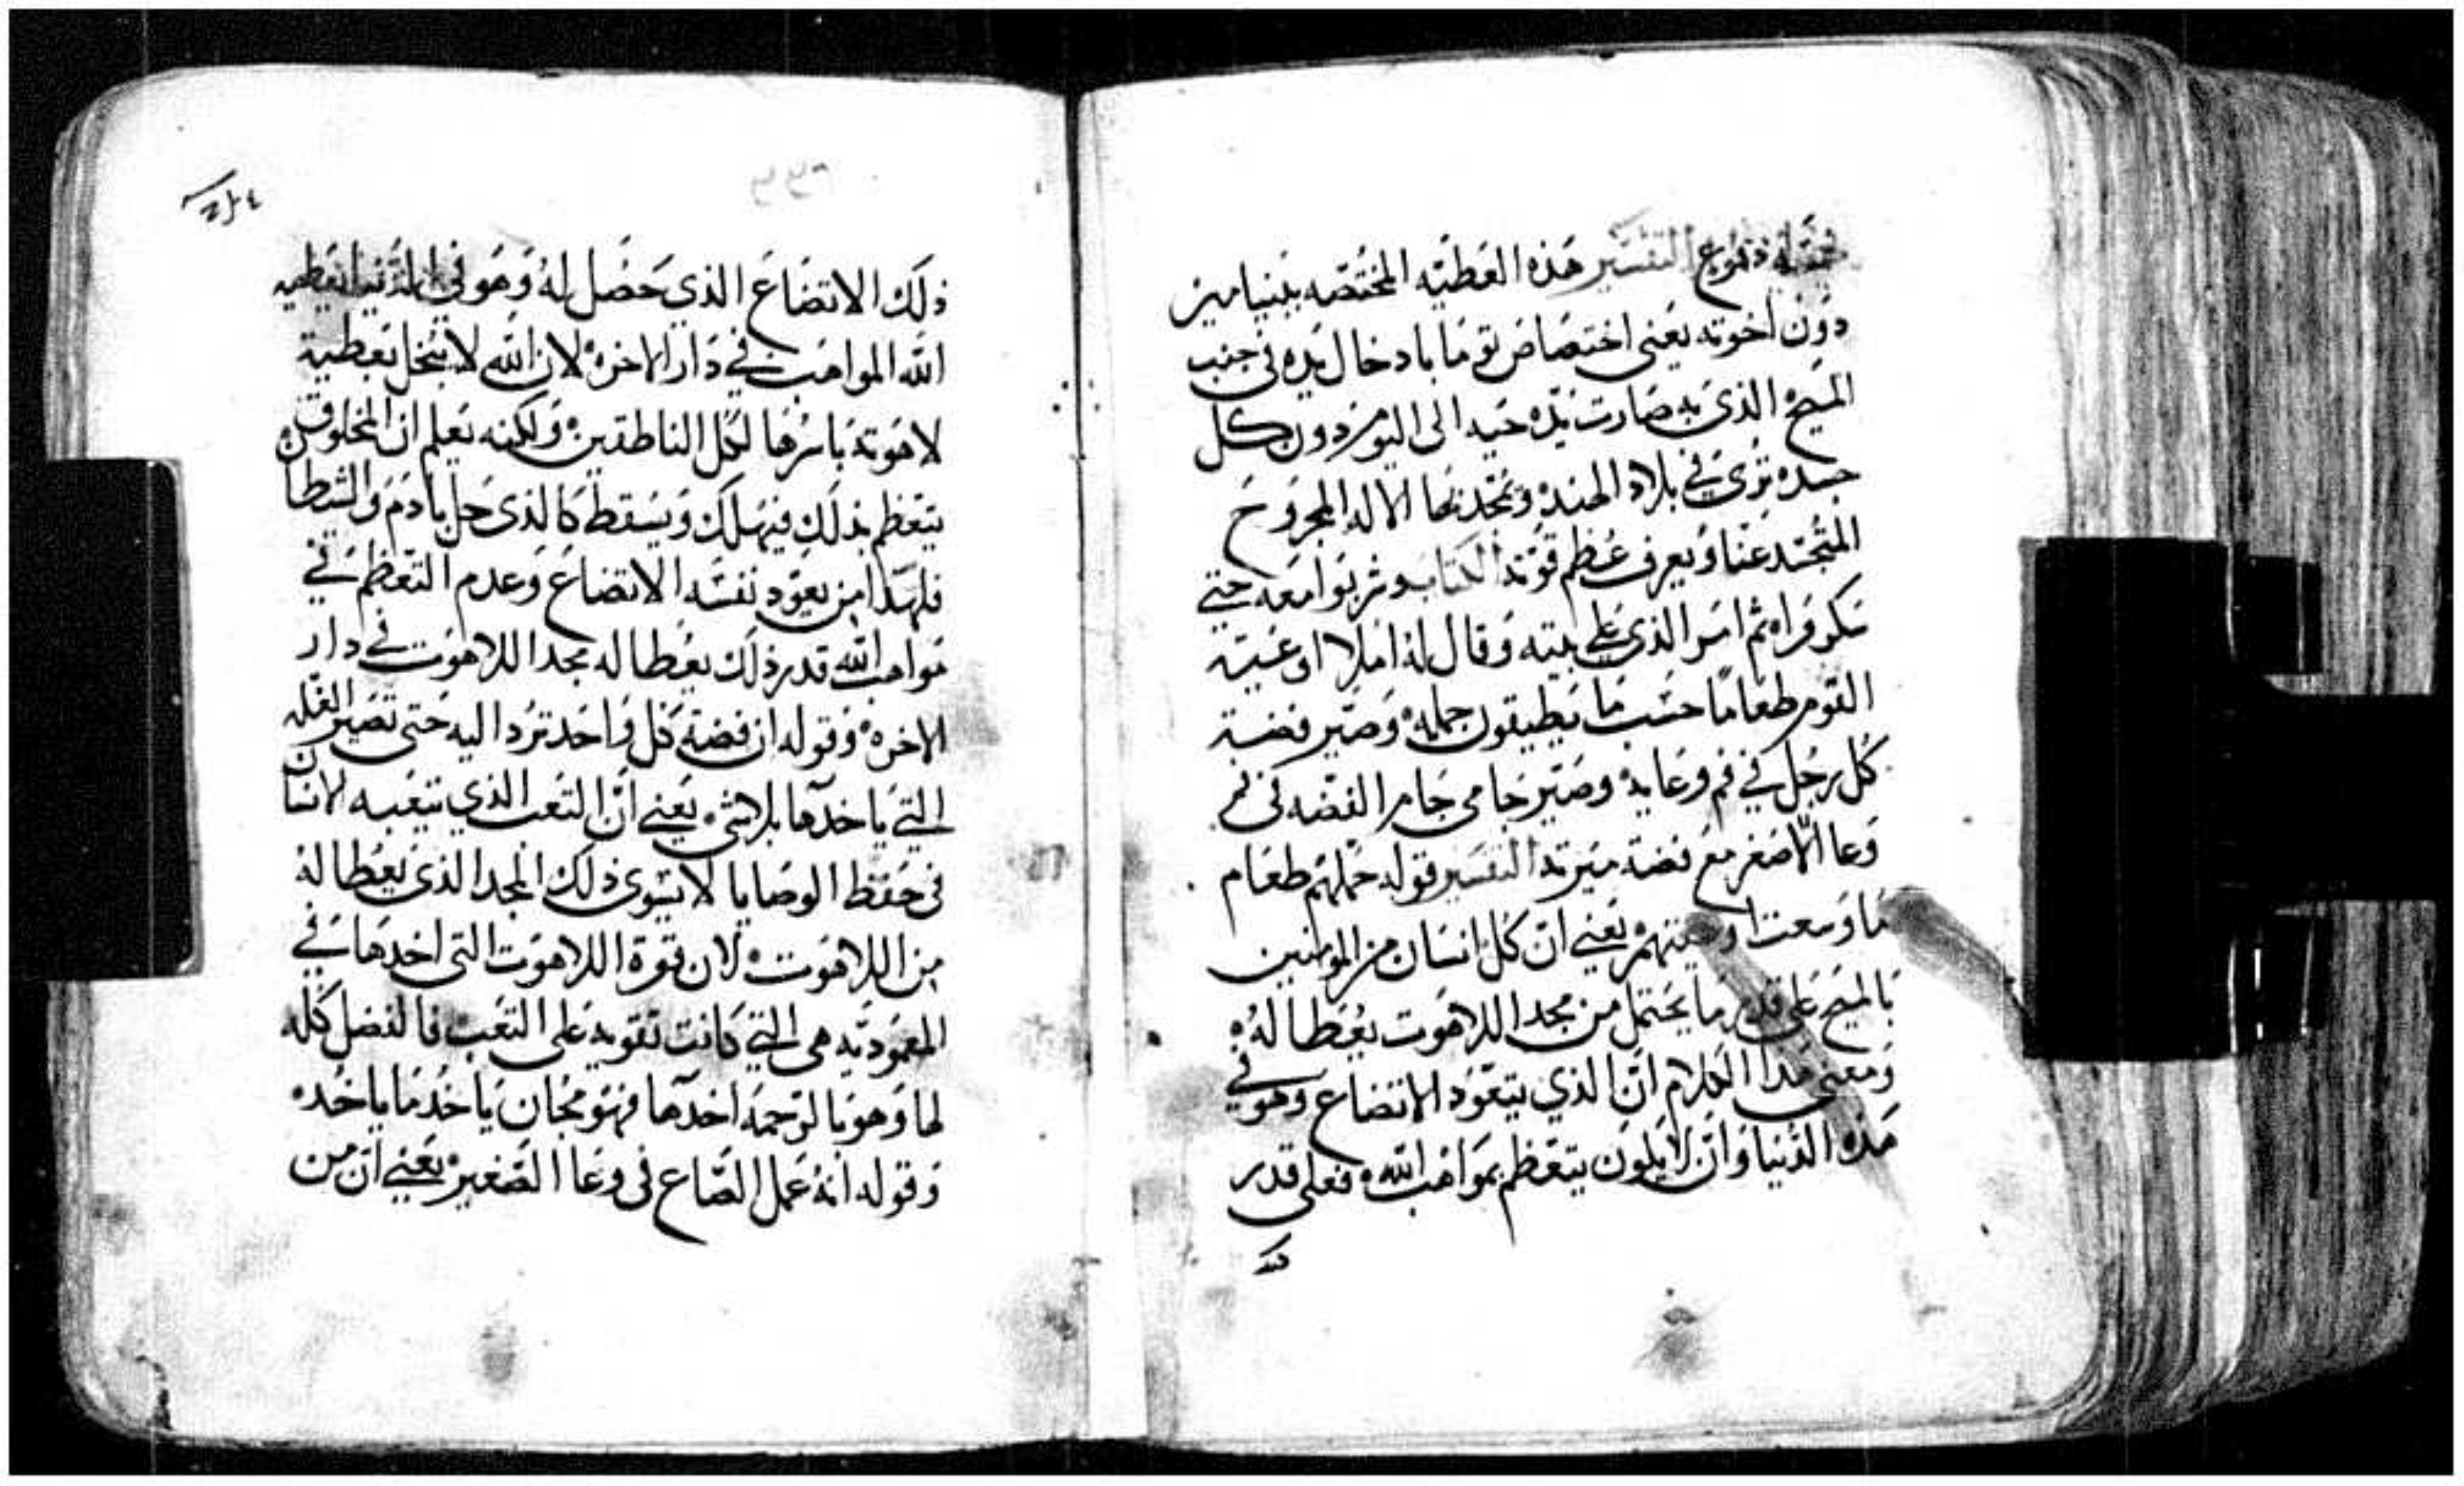 التفسير هذه العطيه المختصه ببنيامين
دون اخوته يعني اختصاص توما بادخال يده في جنب
المسيح الذي به صارت يده حيه الى اليوم دون كل
جسده ترى في بلاد الهند وتمجد بها الاله المجروح
المتجسد عنا ويعرف عظم قوته الكتاب وشربوا معه حتي
سكروا ثم امر الذي علي بيته وقال له املا اوعيت
القوم طعاما حسب ما يطيقون حمله وصير فضة
كل رجل في فم وعايه وصير جامي جام الفضه في فم
وعا الاصغر مع فضة ميرته التفسير قوله حملهم طعام
ما وسعت اوعيتهم يعني ان كل انسان من المومنين
بالمسيح على قدر ما يحتمل من مجد اللاهوت يعطا له
ومعنى هدا الكلام ان الذي يتعود الاتضاع وهو في
هذه الدنيا وان لا يكون يتعظم بمواهب الله فعلى قدر
ذلك الاتضاع الذي حصل له وهو في الدنيا يعطيه
الله المواهب في دار الاخره لان الله لا يبخل بعطية
لاهوته باسرها لكل الناطقين ولكنه يعلم ان المخلوق
يتعظم بذلك فيهلك ويسقط كالذي حل بادم والشطان
فلهذا من يعود نفسه الاتضاع وعدم التعظم في
مواهب الله قدر ذلك يعطا له مجد اللاهوت في دار
الاخره وقوله ان فضة كل واحد ترد اليه حتى تصير الغله
التي ياخدها بلاشي يعني ان التعب الذي يتعبه الانسان
في حفظ الوصايا لا يسوى ذلك المجد الذي يعطا له
من اللاهوت لان قوة اللاهوت التي اخدها في
المعموديه هي التي كانت تقويه على التعب فالفضل كله
لها وهو بالرحمه اخدها فهو مجان ياخد ما ياخده
وقوله انه عمل الصاع في وعا الصغير يعني ان من